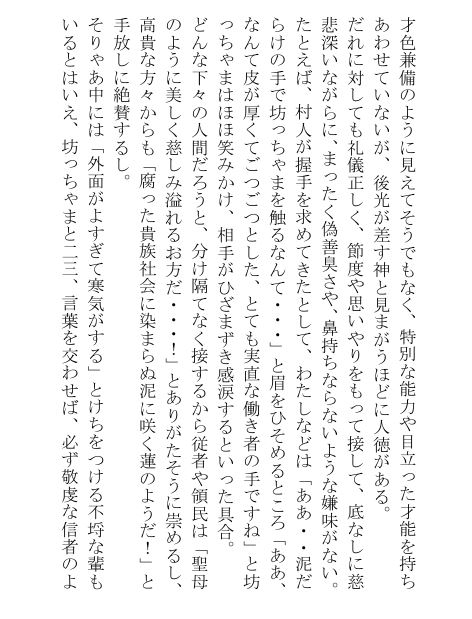 才色兼備のように見えてそうでもなく、特別な能力や目立った才能を持ち
あわせていないが、後光が差す神と見まがうほどに人徳がある。
だれに対しても礼儀正しく、節度や思いやりをもって接して、底なしに慈
悲深いながらに、まったく偽善臭さや、鼻持ちならないような嫌味がない。
たとえば、村人が握手を求めてきたとして、わたしなどは「ああ・・泥だ
らけの手で坊っちゃまを触るなんて・・・」と眉をひそめるところ「ああ、
なんて皮が厚くてごつごつとした、とても実直な働き者の手ですね」と坊
っちゃまはほほ笑みかけ、相手がひざまずき感涙するといった具合。
どんな下々の人間だろうと、分け隔てなく接するから従者や領民は「聖母
のように美しく慈しみ溢れるお方だ・・・！」とありがたそうに崇めるし、
高貴な方々からも「腐った貴族社会に染まらぬ泥に咲く蓮のようだ！」と
手放しに絶賛するし。
そりゃあ中には「外面がよすぎて寒気がする」とけちをつける不埒な輩も
いるとはいえ、坊っちゃまと二三、言葉を交わせば、必ず敬虔な信者のよ